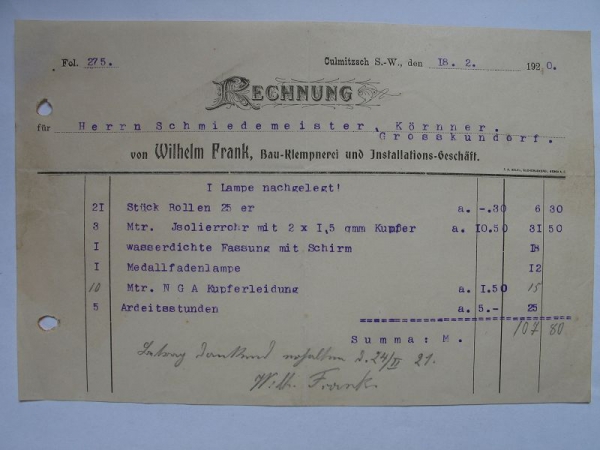 Fol. 275.
Culmitzsch S.-W., den 18. 2. 1920.
RECHNUNG
für Herrn Schmiedemeister, Körnner.
Grosskundorf.
von Wilhelm Frank, Bau-Klempnerei und Installations-Geschäft.
I Lampe nachgelegt!
2I Stück Rollen 25 er a. -.30 6 30
3 Mtr. Jsolierrohr mit 2 x I,5 qmm Kupfer a. I0.50 3I 50
I wasserdichte Fassung mit Schirm I8
I Medallfadenlampe I2
10 Mtr. N G A Kupferleidung a. I.50 15
5 Ardeitsstunden a. 5.- 25
Summa: M. 107 80
Betrag dankend erhalten d. 24/II 21.
Wilh. Frank.